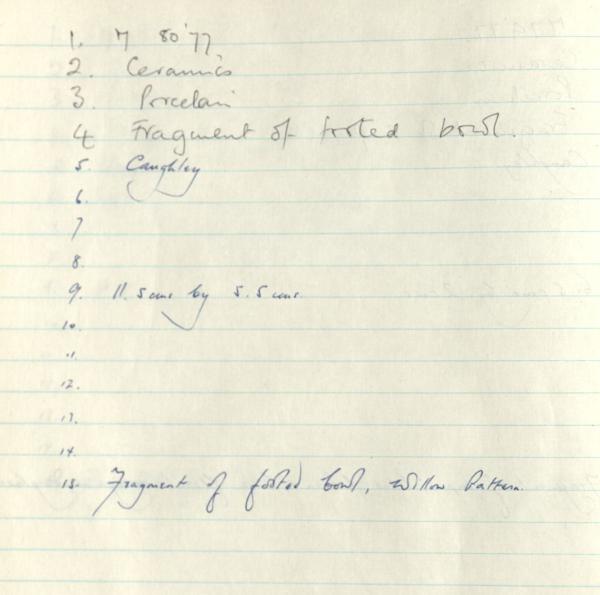 1. M 80'77
2. Ceramics
3. Porcelain
4 Fragment of footed bowl.
5. Caughley
6.
7
8.
9. 11.5cms by 5.5cms.
10.
11.
12.
13.
14.
15. Fragment of footed bowl, Willow Pattern.